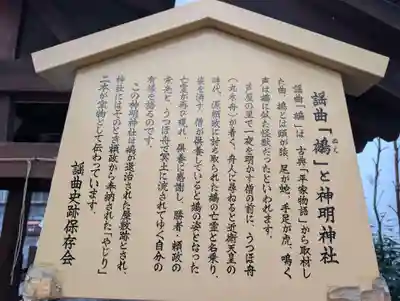 謡曲「鵺」と神明神社
謡曲「鵺」は、古典「平家物語」から取材し
た曲。鵺とは頭が猿、尾が蛇、手足が虎、鳴く
声は鵺に似た怪獣だったといわれます。
芦屋の里で一夜を明かす僧の前に、うつほ舟
(丸木舟)が着く。舟人に尋ねると近衛天皇の
時代、源頼政に討め取られた鵺の亡霊と名乗り、
姿を消す。僧が供養していると鵺の姿となった
亡霊が再び現れ、供養に感謝し、勝者・頼政の
栄光と、うつほ舟で冥土に流されてゆく自分の
有様を語るのです。
この神明神社は鵺が退治された屋敷跡とされ、
神社にはそのとき頼政から奉納された「やじり」
二本が宝物として伝わっています。
謡曲史跡保存会